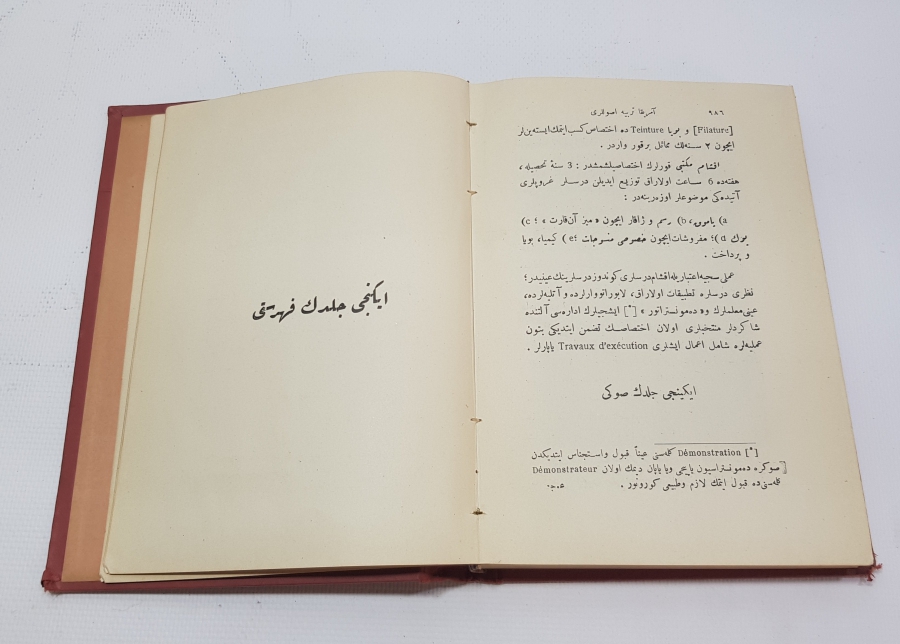 ٩٨٦ آمریقا تربیه اصوللری
[Filature] و بویا Teinture ده اختصاص کسب ایتمك ایسته‌ین‌لر
ایچون ٢ سنه‌لك مماثل برقور واردر .
اقشام مکتبی قورلرك اختصاصیلشمشدر : 3 سنهٔ تحصیله ،
هفته‌ده 6 ساعت اولاراق توزیع ایدیلن درسلر غروپلری
آتیده‌کی موضوعلر اوزه‌رینه‌در :
a) پاموق، b) رسم و ژاقار ایچون « میز آن‌قارت » ؛ c)
یوك d)؛ مفروشات ایچون خصوصی منسوجات ؛e ) کیمیا، بویا
و پرداخت .
عملی سجیه اعتباریله اقشام درسلری کوندوز درسلرینك عینیدر ؛
نظری درسلره تطبیقات اولاراق، لابوراتووارلرده و آتلیه‌لرده،
عینی معلملرك و « ده‌مونستراتور » [*] ایشجیلرك اداره‌سی آلتنده
شاکردلر منتخبلری اولان اختصاصك تضمن ایتدیکی بتون
عملیه‌لره شامل اعمال ایشلری Travaux d'exécution یاپارلر .
ایکینجی جلدك صوکی
[*] Démonstration کله‌سنی عیناً قبول واستجناس ایتدیکدن
صوکره ده‌مونستراسیون یاپیجی ویا یاپان دیمك اولان Démonstrateur
کله‌سنی‌ده قبول ایتمك لازم وطبیعی کورونور . ع.ج.
ایکنجی جلدك فهرستی